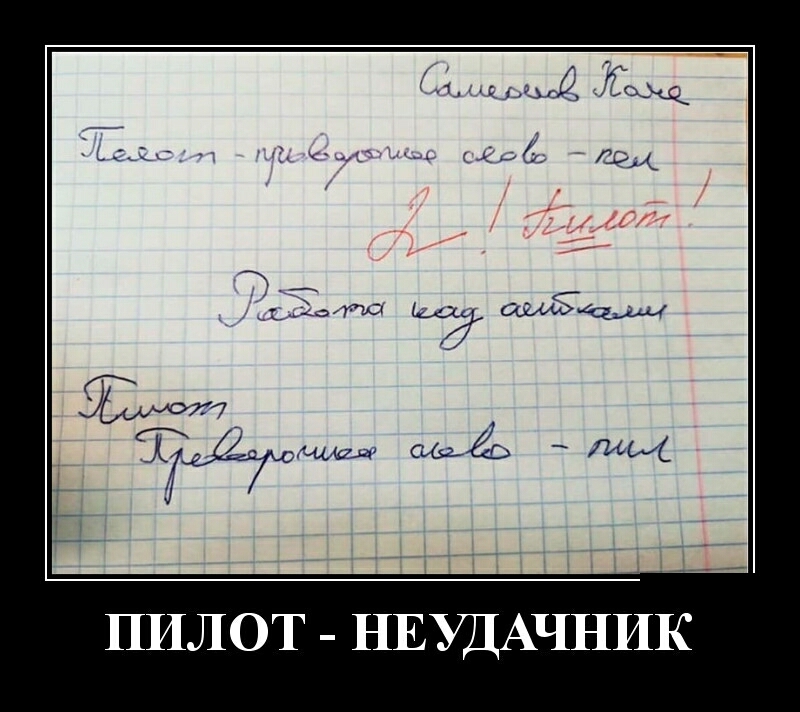 Самсонов
Пелот - приверочное слово - пел
2! Пилот!
Работа над ашибками
Пилот
Преверочное слово - пил
ПИЛОТ - НЕУДАЧНИК